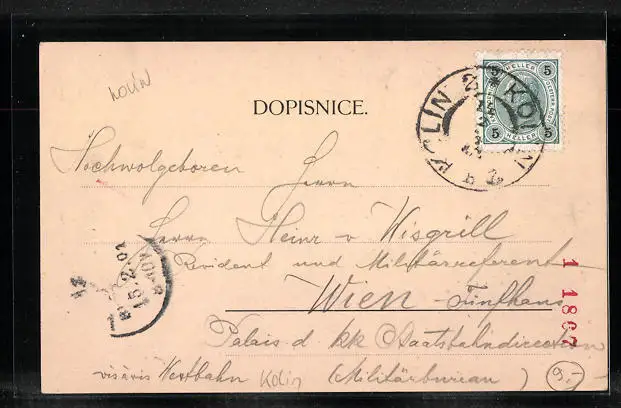 KOLIN
DOPISNICE.
5 HELLER 5
5 HELLER 5
KOLIN 2
Hochwolgeboren Herrn
Herrn Heinr v Wisgrill
Revident und Militärreferent
Wien - Fünfhaus
Palais d kk Staatsbahndirection
visávis Westbahn Kolin (Militärbureau)
15.2.01
1 1867
9,-